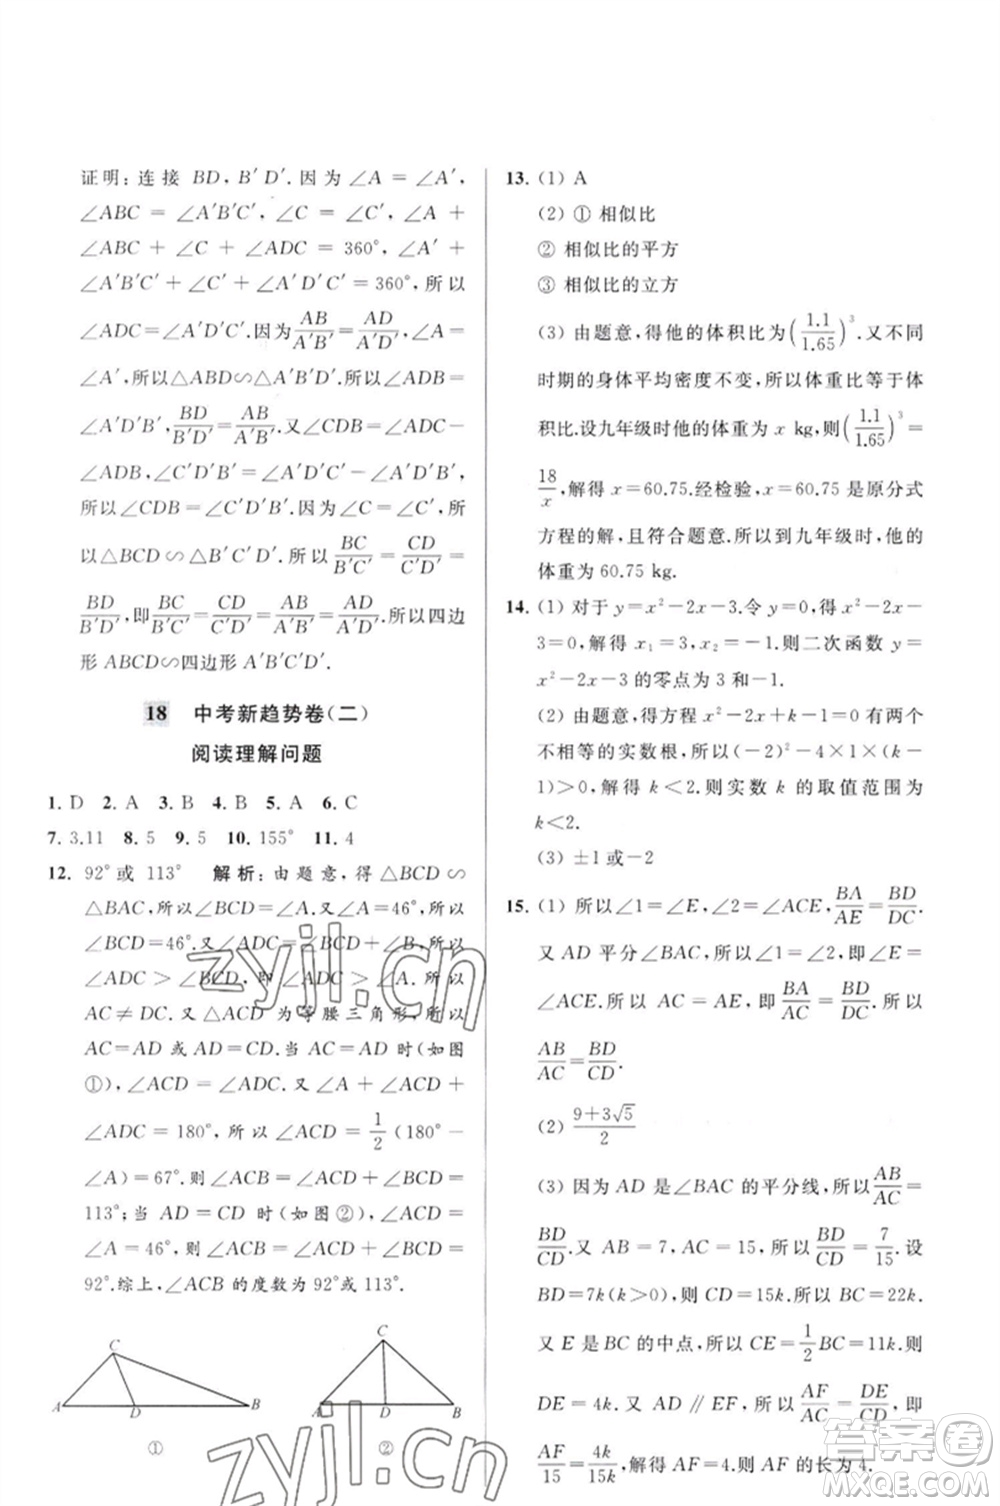 证明:连接 BD, B′D′.因为∠A = ∠A′,
∠ABC = ∠A′B′C′, ∠C = ∠C′, ∠A +
∠ABC + ∠C + ∠ADC = 360°, ∠A′ +
∠A′B′C′ + ∠C′ + ∠A′D′C′ = 360°,所以
∠ADC=∠A′D′C′.因为AB/A′B′=AD/A′D′,∠A=
∠A′,所以△ABD∽△A′B′D′.所以∠ADB=
∠A′D′B′,BD/B′D′=AB/A′B′.又∠CDB=∠ADC-
∠ADB,∠C′D′B′=∠A′D′C′-∠A′D′B′,
所以∠CDB=∠C′D′B′.又∠C=∠C′,所
以△BCD∽△B′C′D′.所以BC/B′C′=CD/C′D′=
BD/B′D′,即BC/B′C′=CD/C′D′=AB/A′B′=AD/A′D′.所以四边
形 ABCD∽四边形 A′B′C′D′.
18 中考新趋势卷(二)
阅读理解问题
1. D 2. A 3. B 4. B 5. A 6. C
7. 3,11 8. 5 9. 5 10. 155° 11. 4
12. 92°或 113° 解析:由题意,得△BCD∽
△BAC,所以∠BCD=∠A.又∠A=46°,所以
∠BCD=46°.又∠ADC=∠B+∠BCD,所以
∠ADC>∠BCD,即∠ADC>∠A.所以
AC≠DC.又△ACD 为等腰三角形,所以
AC=AD 或 AD=CD.当 AC=AD 时(如图
①),∠ACD=∠ADC.又∠A+∠ACD+
∠ADC=180°,所以∠ACD=1/2(180°-
∠A)=67°.则∠ACB=∠ACD+∠BCD=
113°;当 AD=CD 时(如图②),∠ACD=
∠A=46°,所以∠ACB=∠ACD+∠BCD=
92°.综上,∠ACB 的度数为 92°或 113°.
C
A D B
①
C
A D B
②
13. (1) A
(2) ① 相似比
② 相似比的平方
③ 相似比的立方
(3) 由题意,得他的体积比为(1.1/1.65)³.又不同
时期的身体平均密度不变,所以体重比等于体
积比.设九年级时他的体重为 x kg,则(1.1/1.65)³=
18/x,解得 x=60.75.经检验,x=60.75 是原分式
方程的解,且符合题意.所以到九年级时,他的
体重为 60.75 kg.
14. (1) 对于 y=x²-2x-3.令 y=0,得 x²-2x-
3=0,解得 x₁=3,x₂=-1.则二次函数 y=
x²-2x-3 的零点为 3 和-1.
(2) 由题意,得方程 x²-2x+k-1=0 有两个
不相等的实数根,所以(-2)²-4×1×(k-
1)>0,解得 k<2.所以实数 k 的取值范围为
k<2.
(3) ±1 或-2
15. (1) 所以∠1=∠E,∠2=∠ACE,BA/AE=BD/DC.
又 AD 平分∠BAC,所以∠1=∠2,即∠E=
∠ACE.所以 AC=AE,即BA/AC=BD/DC.所以
AB/AC=BD/CD.
(2) (9+3√5)/2
(3) 因为 AD 是∠BAC 的平分线,所以AB/AC=
BD/CD.又 AB=7,AC=15,所以BD/CD=7/15.设
BD=7k(k>0),则 CD=15k.所以 BC=22k.
又 E 是 BC 的中点,所以 CE=1/2BC=11k.则
DE=4k.又 AD∥EF,所以AF/AC=DE/CD,即
AF/15=4k/15k,解得 AF=4.所以 AF 的长为 4.
zyjl.cn
zyjl.cn
答案卷
MXQE.COM